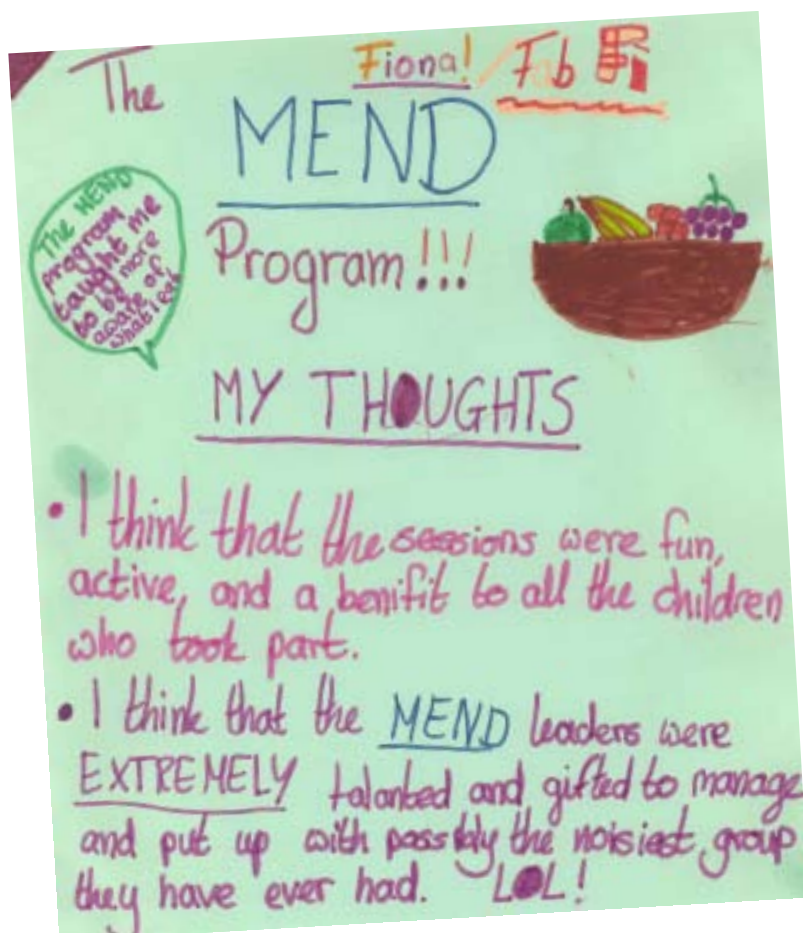 The
Fiona!
Fab
MEND
Program!!!
The MEND
program
taught me
to be more
aware of
what i eat
MY THOUGHTS
• I think that the sessions were fun,
active, and a benifit to all the children
who took part.
• I think that the MEND leaders were
EXTREMELY talanted and gifted to manage
and put up with possibly the noisiest group
they have ever had. LOL!